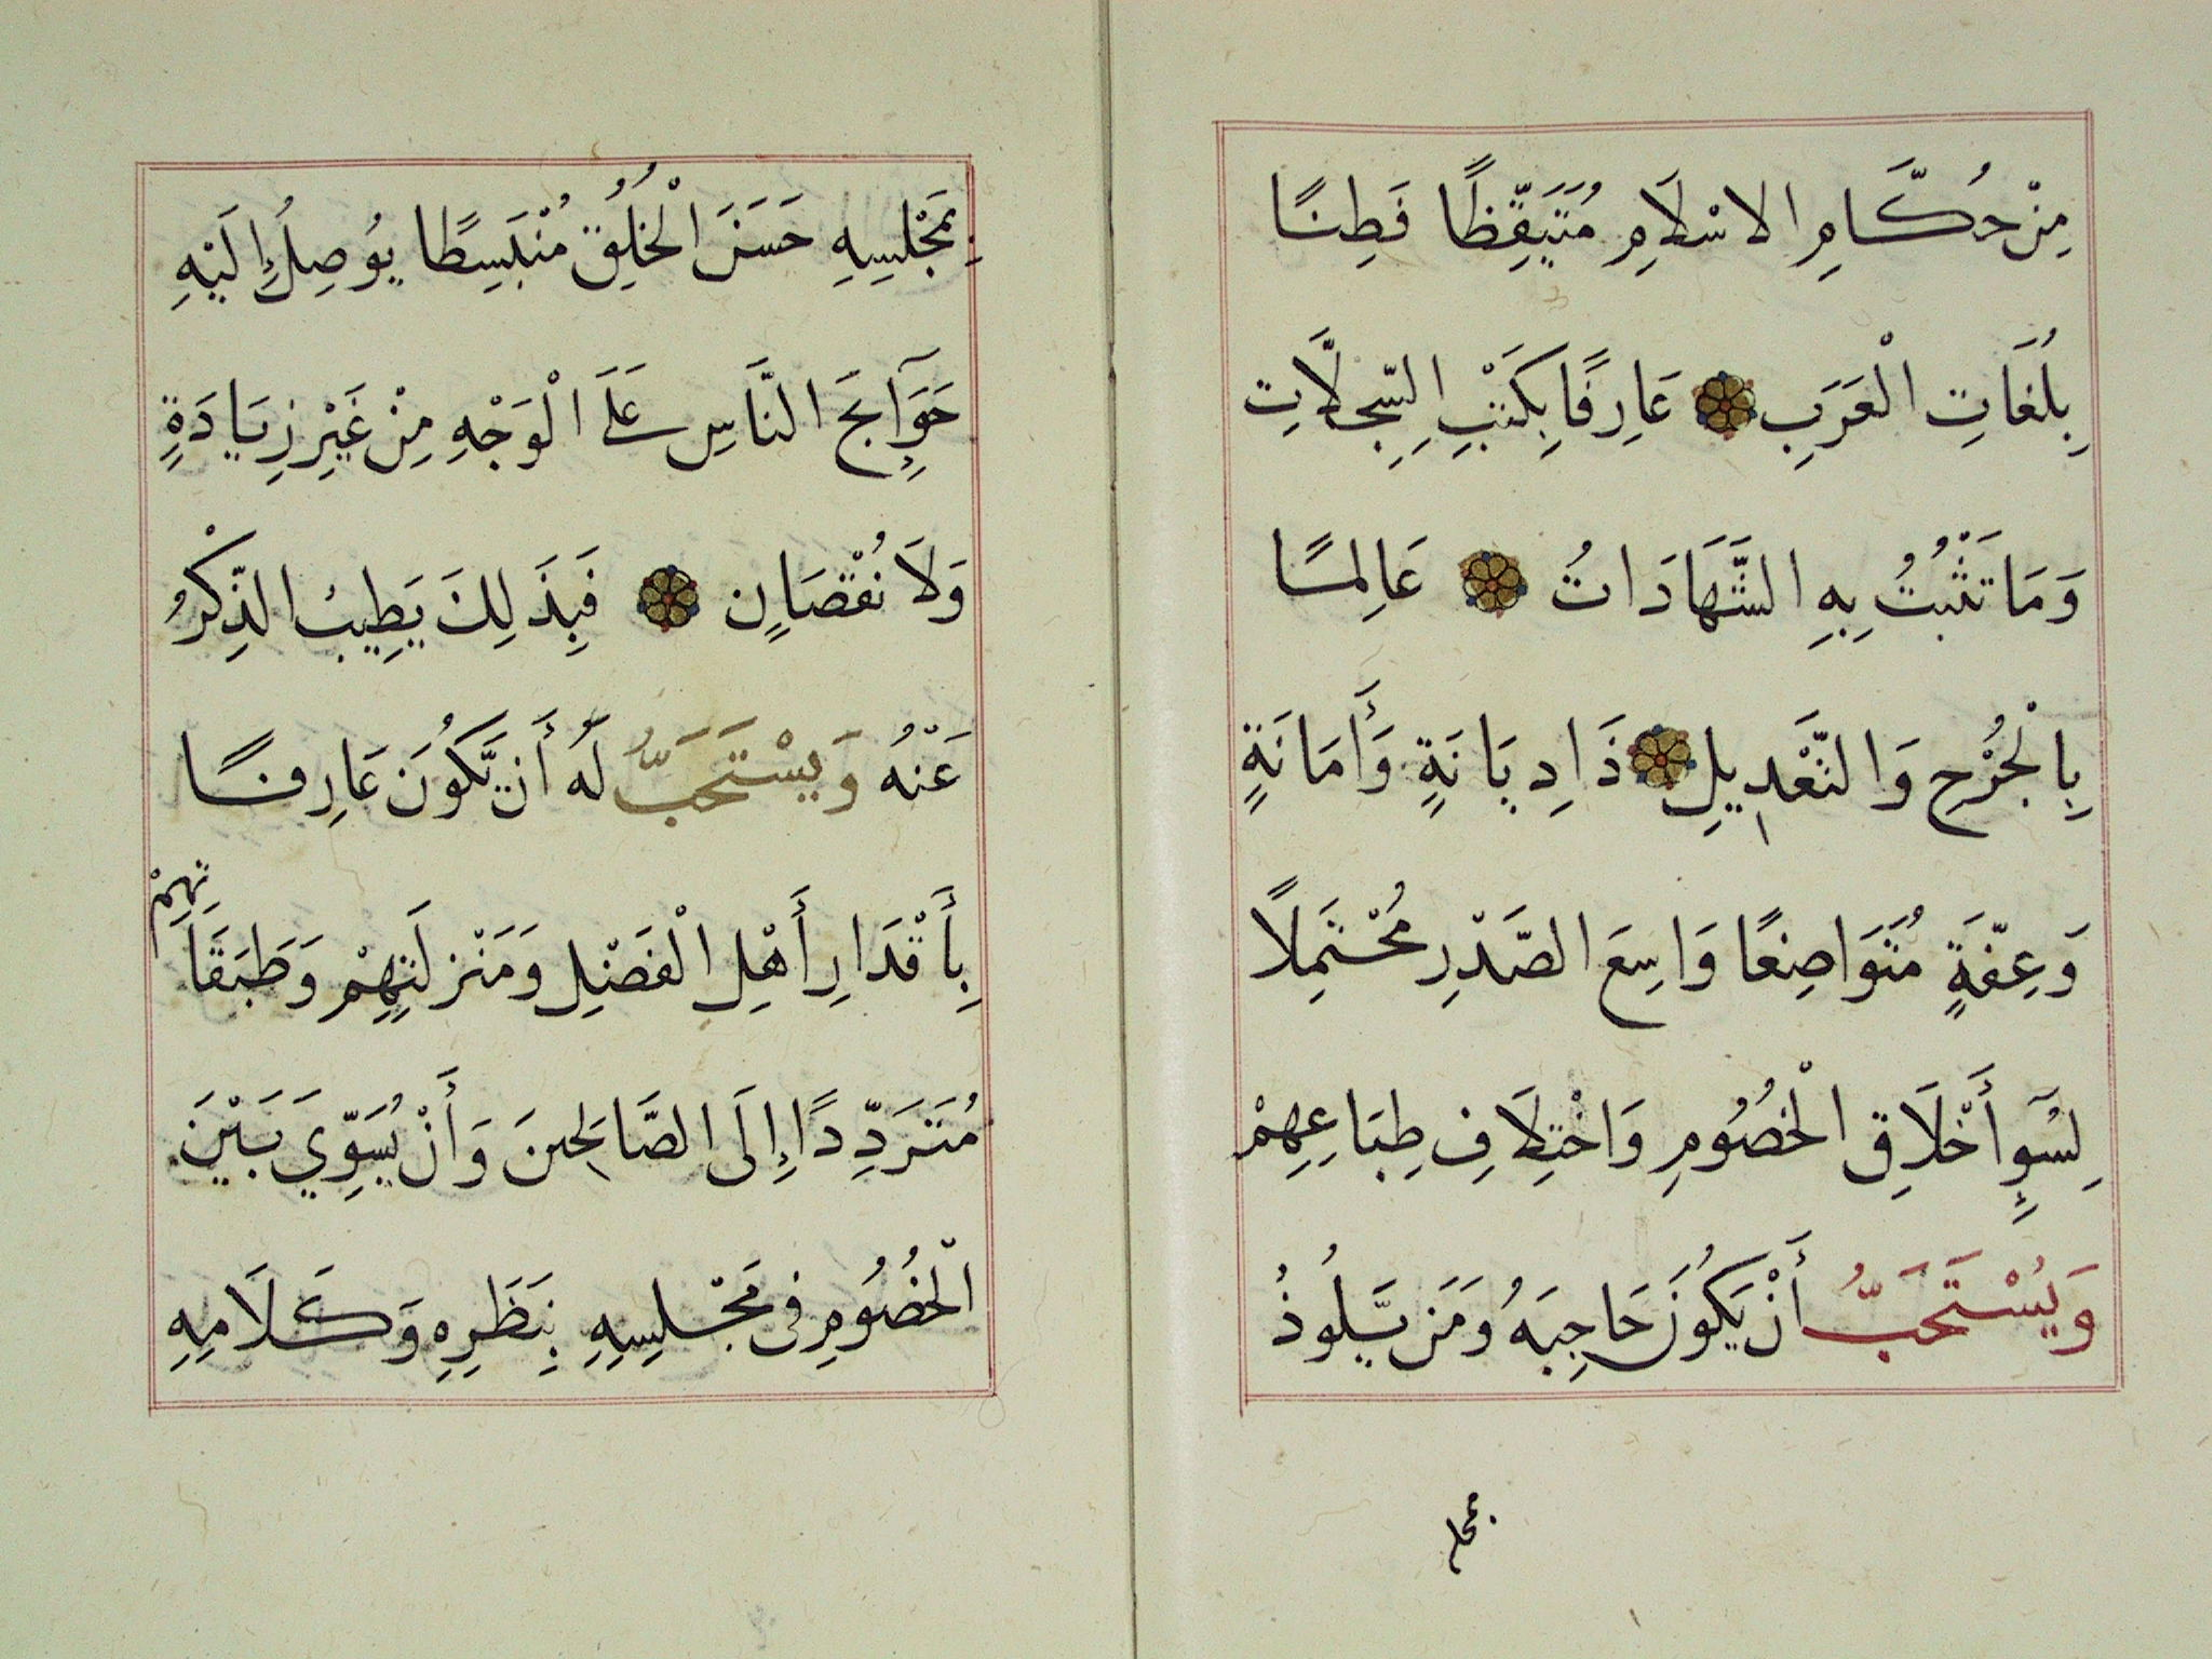 مِنْ حُكَّامِ الاسْلَامِ مُتَيَقِّظًا فَطِنًا
بِلُغَاتِ الْعَرَبِ عَارِفًا بِكَتْبِ السِّجِلَّاتِ
وَمَا تَثْبُتُ بِهِ الشَّهَادَاتُ عَالِمًا
بِالْجُرْحِ وَالتَّعْدِيلِ ذَا دِيَانَةٍ وَأَمَانَةٍ
وَعِفَّةٍ مُتَوَاضِعًا وَاسِعَ الصَّدْرِ مُحْتَمِلًا
لِسُوٓءِ أَخْلَاقِ الْخُصُومِ وَاخْتِلَافِ طِبَاعِهِمْ
وَيُسْتَحَبُّ أَنْ يَكُونَ حَاجِبَهُ وَمَن يَّلُوذُ
بمجلسه
بِمَجْلِسِهِ حَسَنَ الْخُلُقِ مُنْبَسِطًا يُوصِلُ إِلَيْهِ
حَوَآئِجَ النَّاسِ عَلَى الْوَجْهِ مِنْ غَيْرِ زِيَادَةٍ
وَلَا نُقْصَانٍ فَبِذَلِكَ يَطِيبُ الذِّكْرُ
عَنْهُ وَيُسْتَحَبُّ لَهُ أَن يَّكُونَ عَارِفًا
بِأَقْدَارِ أَهْلِ الْفَضْلِ وَمَنْزِلَتِهِمْ وَطَبَقَاتِهِمْ
مُتَرَدِّدًا إِلَى الصَّالِحِينَ وَأَنْ يُسَوِّيَ بَيْنَ
الْخُصُومِ فِى مَجْلِسِهِ بِنَظَرِهِ وَكَلَامِهِ